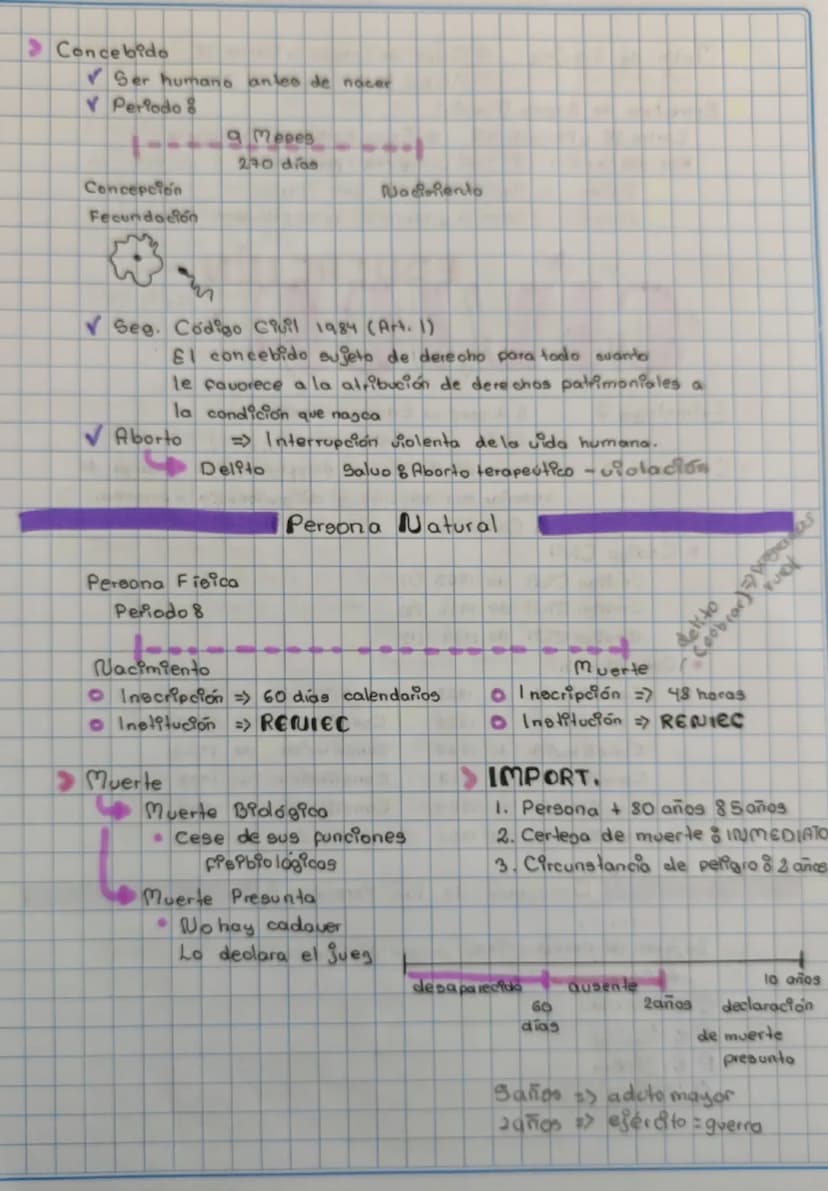 Concebido
✓ Ser humano antes de nacer
✓ Periodo:
9 Meses
270 días
Concepción Nacimiento
Fecundación
✓ Seg. Código Civil 1984 (Art. 1)
El concebido sujeto de derecho para todo cuanto
le favorece a la atribución de derechos patrimoniales a
la condición que nasca
✓ Aborto => Interrupción violenta de la vida humana.
Delito Salvo: Aborto terapeútico - violación
Persona Natural
Persona Física
Periodo:
delito
(cobrar) =>
rural
Nacimiento Muerte
Inscripción => 60 días calendarios Inscripción => 48 horas
Institución => RENIEC Institución => RENIEC
Muerte IMPORT.
Muerte Biológica 1. Persona + 80 años: 5 años
• Cese de sus funciones 2. Certeza de muerte: INMEDIATO
fisiobiológicas 3. Circunstancia de peligro: 2 años
Muerte Presunta
• No hay cadaver
Lo declara el juez
desaparecido ausente 10 años
60 2 años declaración
días de muerte
presunta
5 años => adulto mayor
2 años => ejército = guerra